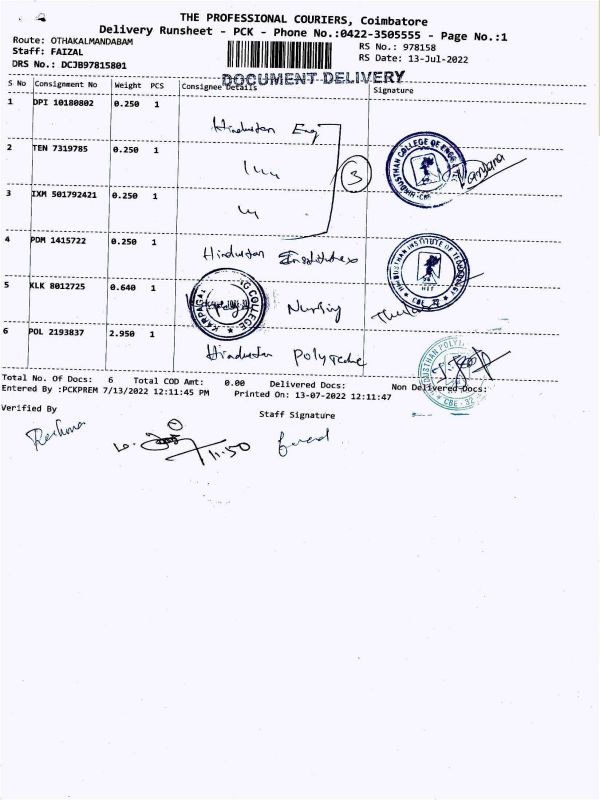 THE PROFESSIONAL COURIERS, Coimbatore
Delivery Runsheet - PCK - Phone No.:0422-3505555 - Page No.:1
Route: OTHAKALMANDABAM
RS No.: 978158
Staff: FAIZAL
RS Date: 13-Jul-2022
DRS No.: DCJB97815801
DOCUMENT DELIVERY
S No Consignment No Weight PCS Consignee Details Signature
1 DPI 10180802 0.250 1
Hindustan Eng
2 TEN 7319785 0.250 1
3
3 IXM 501792421 0.250 1
HINDUSTHAN COLLEGE OF ENGG
CBE
4 PDM 1415722 0.250 1
Hindustan Institutes
HINDUSTHAN INSTITUTE OF TECHNOLOGY
HIT
CBE 32
5 KLK 8012725 0.640 1
Nursing
KARPAGAM NURSING COLLEGE
6 POL 2193837 2.950 1
Hindustan Polytechnic
HINDUSTHAN POLYTECHNIC
CBE - 32
Total No. Of Docs: 6 Total COD Amt: 0.00 Delivered Docs: Non Delivered Docs:
Entered By :PCKPREM 7/13/2022 12:11:45 PM Printed On: 13-07-2022 12:11:47
Verified By
Staff Signature
11.50